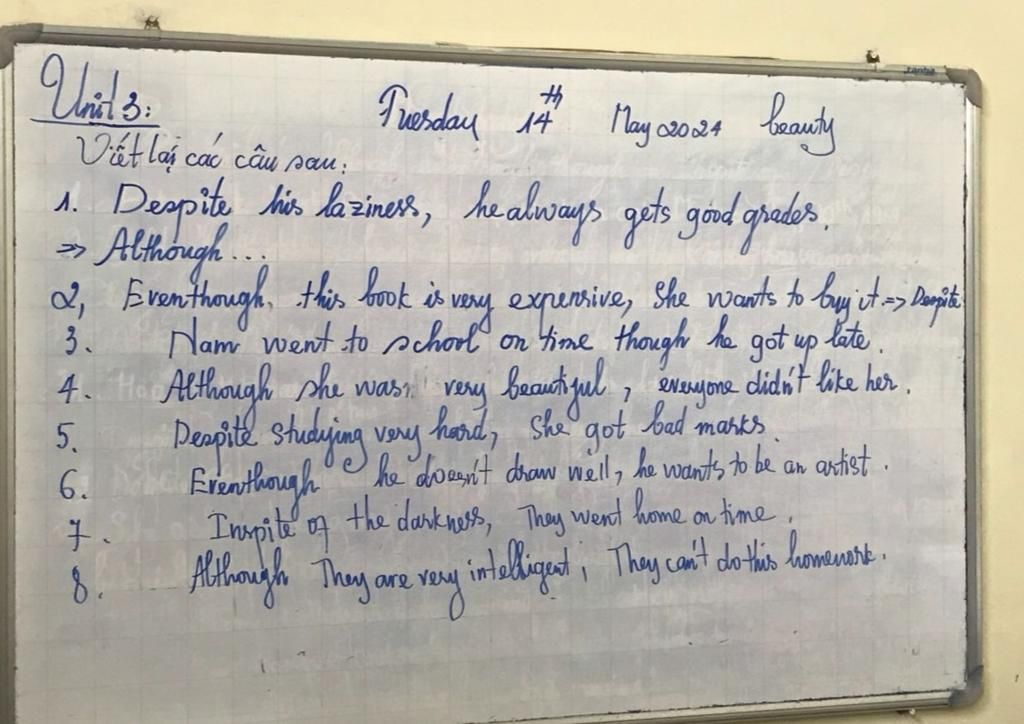 Unit 3:
Tuesday 14th May 2024 beauty
Viết lại các câu sau:
1. Despite his laziness, he always gets good grades.
=> Although...
2, Eventhough, this book is very expensive, she wants to buy it => Despite
3. Nam went to school on time though he got up late.
4. Although she was very beautiful, everyone didn't like her.
5. Despite studying very hard, she got bad marks.
6. Eventhough he doesn't draw well, he wants to be an artist.
7. Inspite of the darkness, They went home on time.
8. Although They are very intelligent, They can't do this homework.